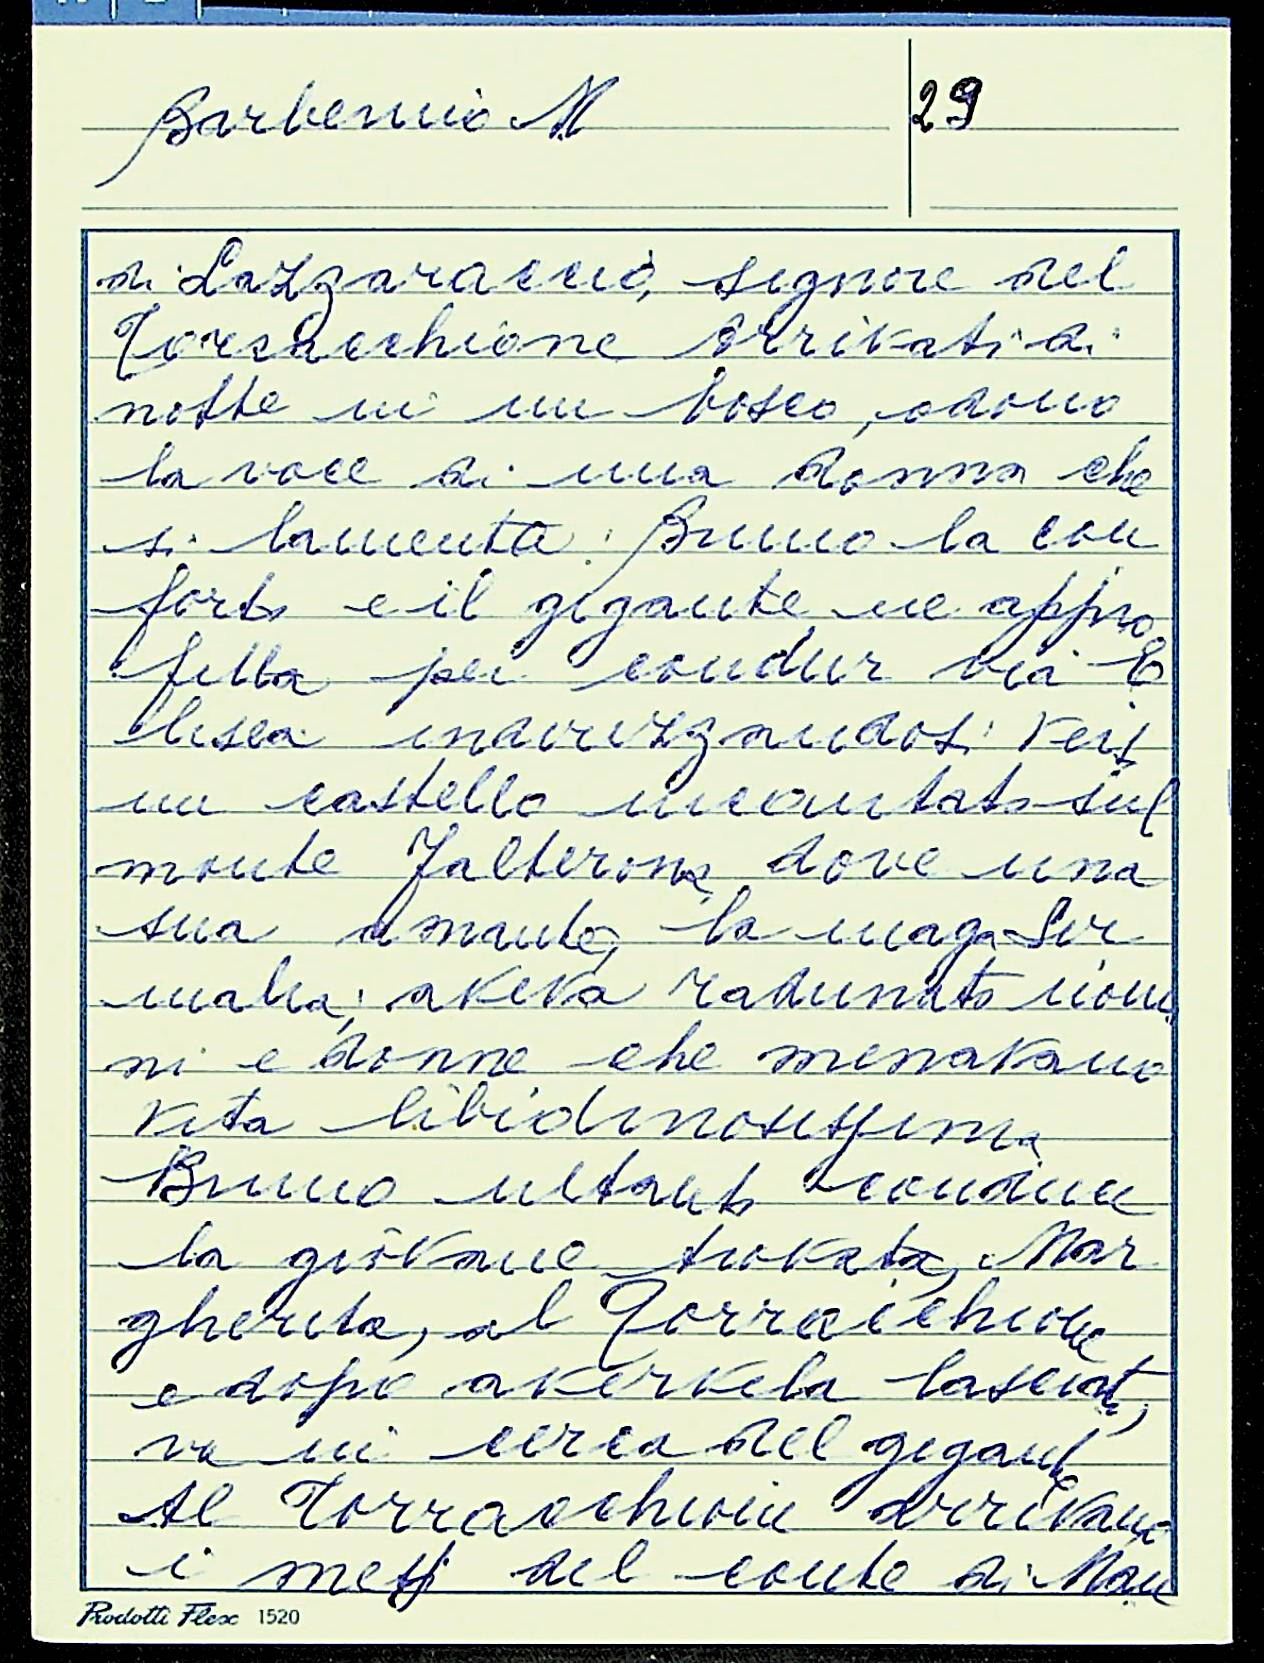 Barbennio M
29
di Lazzaraccio, signore del
Torracchione Arrivati di
notte in un bosco, odono
la voce di una donna che
si lamenta: Bruno la con
forta e il gigante ne appro
fitta per condur via E
lisea indirizzandosi vers
un castello incantato sul
monte Falterona dove una
sua amante, la maga Sir
malia, aveva radunato uomi
ni e donne che menavano
vita libidinosissima
Bruno intanto conduce
la giovane trovata, Mar
gherita, al Torracchione
e dopo averla lasciata,
va in cerca del gigante
Al Torracchione arrivano
i messi del conte di Man
Prodotti Flex 1520